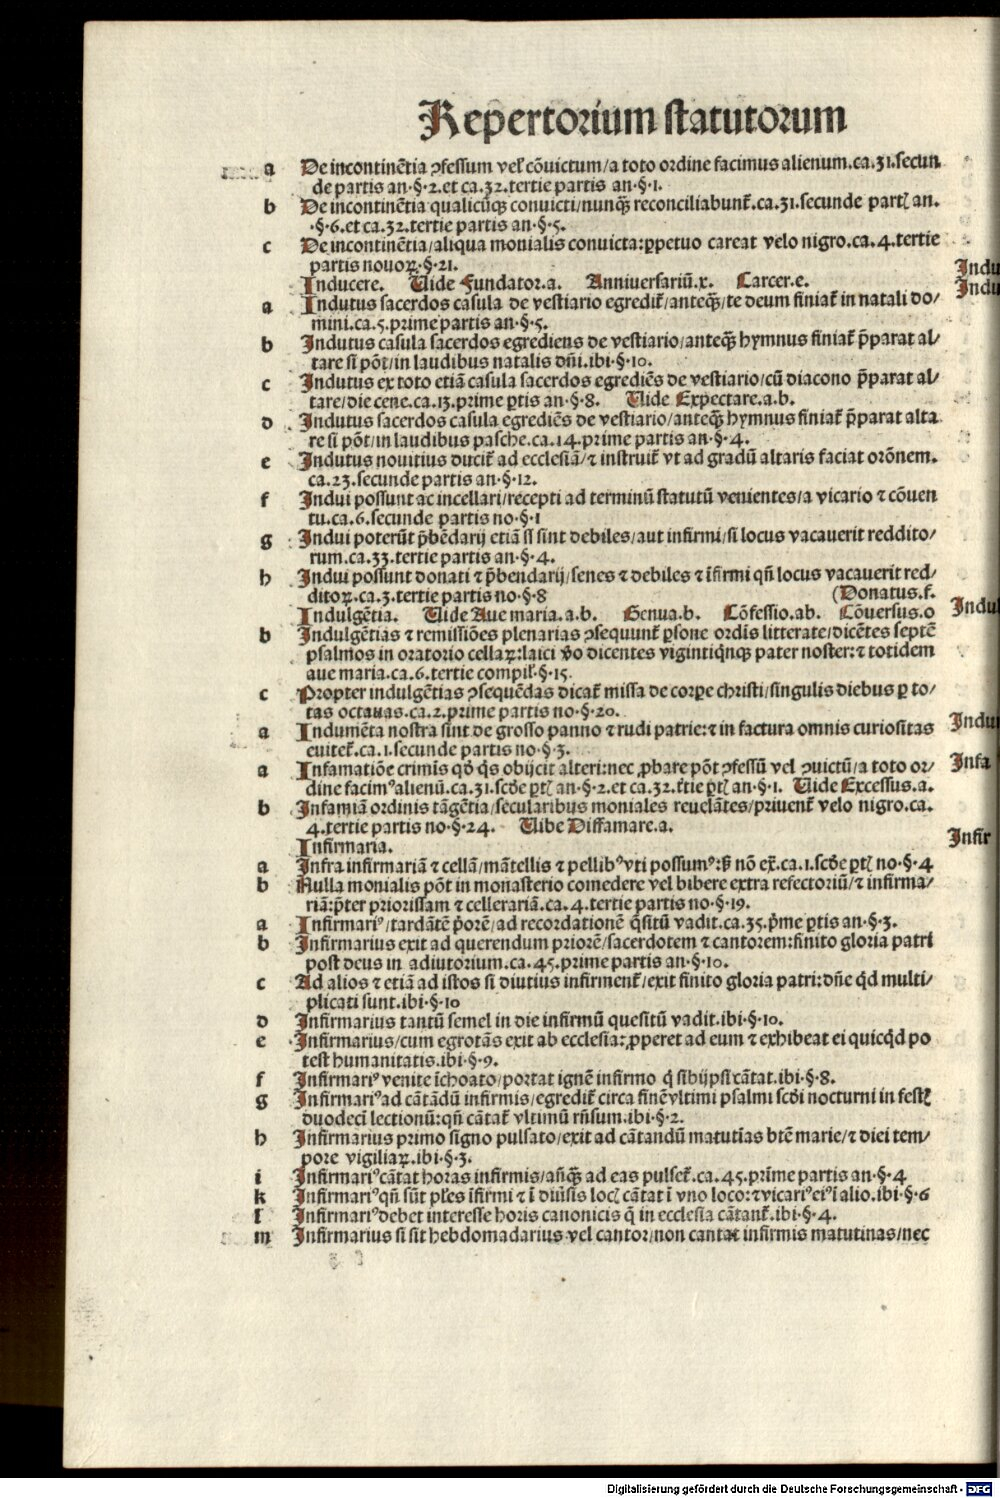 Repertorium statutorum
a De incontinẽtia ꝯfessum vel̉ cõuictum/a toto ordine facimus alienum.ca.31.secun
de partis an.§.2.et ca.32.tertie partis an.§.1.
b De incontinẽtia qualicũqꝫ conuicti/nunqꝫ̃ reconciliabunt̃.ca.31.secunde partꝭ an.
.§.6.et ca.32.tertie partis an.§.5.
c De incontinẽtia/aliqua monialis conuicta:ꝑpetuo careat velo nigro.ca.4.tertie
partis nouoꝝ.§.21.
Inducere. Uide Fundator.a. Anniuersariũ.x. Carcer.e.
a Indutus sacerdos casula de vestiario egredit̃/anteqꝫ̃/te deum finiat̃ in natali do/
mini.ca.5.prime partis an.§.5.
b Indutus casula sacerdos egrediens de vestiario/anteqꝫ̃ hymnus finiat̃ p̃parat al/
tare si põt/in laudibus natalis dñi.ibi.§.10.
c Indutus ex toto etiã casula sacerdos egrediẽs de vestiario/cũ diacono p̃parat al/
tare/die cene.ca.13.prime ꝑtis an.§.8. Uide Expectare.a.b.
d Indutus sacerdos casula egrediẽs de vestiario/anteqꝫ̃ hymnus finiat̃ p̃parat alta
re si põt/in laudibus pasche.ca.14.prime partis an.§.4.
e Indutus nouitius ducit̃ ad ecclesiã/⁊ instruit̃ vt ad gradũ altaris faciat orõnem.
ca.23.secunde partis an.§.12.
f Indui possunt ac incellari/recepti ad terminũ statutũ venientes/a vicario ⁊ cõuen
tu.ca.6.secunde partis no.§.1
g Indui poterũt p̃bẽdarij etiã si sint debiles/aut infirmi/si locus vacauerit reddito/
rum.ca.33.tertie partis an.§.4.
h Indui possunt donati ⁊ p̃bendarij/senes ⁊ debiles ⁊ ĩfirmi qñ locus vacauerit red/
ditoꝝ.ca.3.tertie partis no.§.8 (Donatus.f.
Indulgẽtia. Uide Aue maria.a.b. Genua.b. Cõfessio.ab. Cõuersus.o
b Indulgẽtias ⁊ remissiões plenarias ꝯsequunt̃ ꝑsone ordĩs litterate/dicẽtes septẽ
psalmos in oratorio cellaꝝ:laici ṽo dicentes vigintiqͥnqꝫ pater noster:⁊ totidem
aue maria.ca.6.tertie compil̉.§.15.
c Propter indulgẽtias ꝯsequẽdas dicat̃ missa de corꝑe christi/singulis diebus ꝑ to/
tas octauas.ca.2.prime partis no.§.20.
a Indumẽta nostra sint de grosso panno ⁊ rudi patrie:⁊ in factura omnis curiositas
euitet̃.ca.1.secunde partis no.§.3.
a Infamatiõe crimĩs qđ qͥs obijcit alteri:nec ꝓbare põt ꝯfessũ vel ꝯuictũ/a toto or/
dine facimꝰ alienũ.ca.31.scđe ꝑtꝭ an.§.2.et ca.32.t̃tie ꝑtꝭ an.§.1. Uide Excessus.a.
b Infamiã ordinis tãgẽtia/secularibus moniales reuelãtes/priuent̃ velo nigro.ca.
4.tertie partis no.§.24. Uibe Diffamare.a.
Infirmaria.
a Infra infirmariã ⁊ cellã/mãtellis ⁊ pellibꝰ vti possumꝰ:ẞ nõ ex̃.ca.1.scđe ꝑtꝭ no.§.4
b Nulla monialis põt in monasterio comedere vel bibere extra refectoriũ/⁊ infirma/
riã:p̃ter priorissam ⁊ cellerariã.ca.4.tertie partis no.§.19.
a Infirmariꝰ/tardãtẽ pͥorẽ/ad recordationẽ qͥsitũ vadit.ca.35.pͥme ꝑtis an.§.3.
b Infirmarius exit ad querendum priorẽ/sacerdotem ⁊ cantorem:finito gloria patri
post deus in adiutorium.ca.45.prime partis an.§.10.
c Ad alios ⁊ etiã ad istos si diutius infirment̃/exit finito gloria patri:dñe qͥd multi/
plicati sunt.ibi.§.10
d Infirmarius tantũ semel in die infirmũ quesitũ vadit.ibi.§.10.
e Infirmarius/cum egrotãs exit ab ecclesia:ꝓperet ad eum ⁊ exhibeat ei quicqͥd po
test humanitatis.ibi.§.9.
f Infirmariꝰ venite ĩchoato/portat ignẽ infirmo qͥ sibijpsi cãtat.ibi.§.8.
g Infirmariꝰ ad cãtãdũ infirmis/egredit̃ circa finẽ vltimi psalmi scđi nocturni in festꝭ
duodecĩ lectionũ:qñ cãtat̃ vltimũ rñsum.ibi.§.2.
h Infirmarius primo signo pulsato/exit ad cãtandũ matutĩas btẽ marie/⁊ diei tem/
pore vigiliaꝝ.ibi.§.3.
i Infirmariꝰ cãtat horas infirmis/añqꝫ̃ ad eas pulset̃.ca.45.prime partis an.§.4
k Infirmariꝰ qñ sũt pl̃es ĩfirmi ⁊ ĩ diũsis locꝭ cãtat ĩ vno loco:⁊ vicariꝰ eiꝰ ĩ alio.ibi.§.6
l Infirmariꝰ debet interesse horis canonicis q̃ in ecclesia cãtant̃.ibi.§.4.
m Infirmarius si sit hebdomadarius vel cantor/non cantat infirmis matutinas/nec
Indu
Indu
Indul
Indu
Infa
Infir
Digitalisierung gefördert durch die Deutsche Forschungsgemeinschaft - DFG